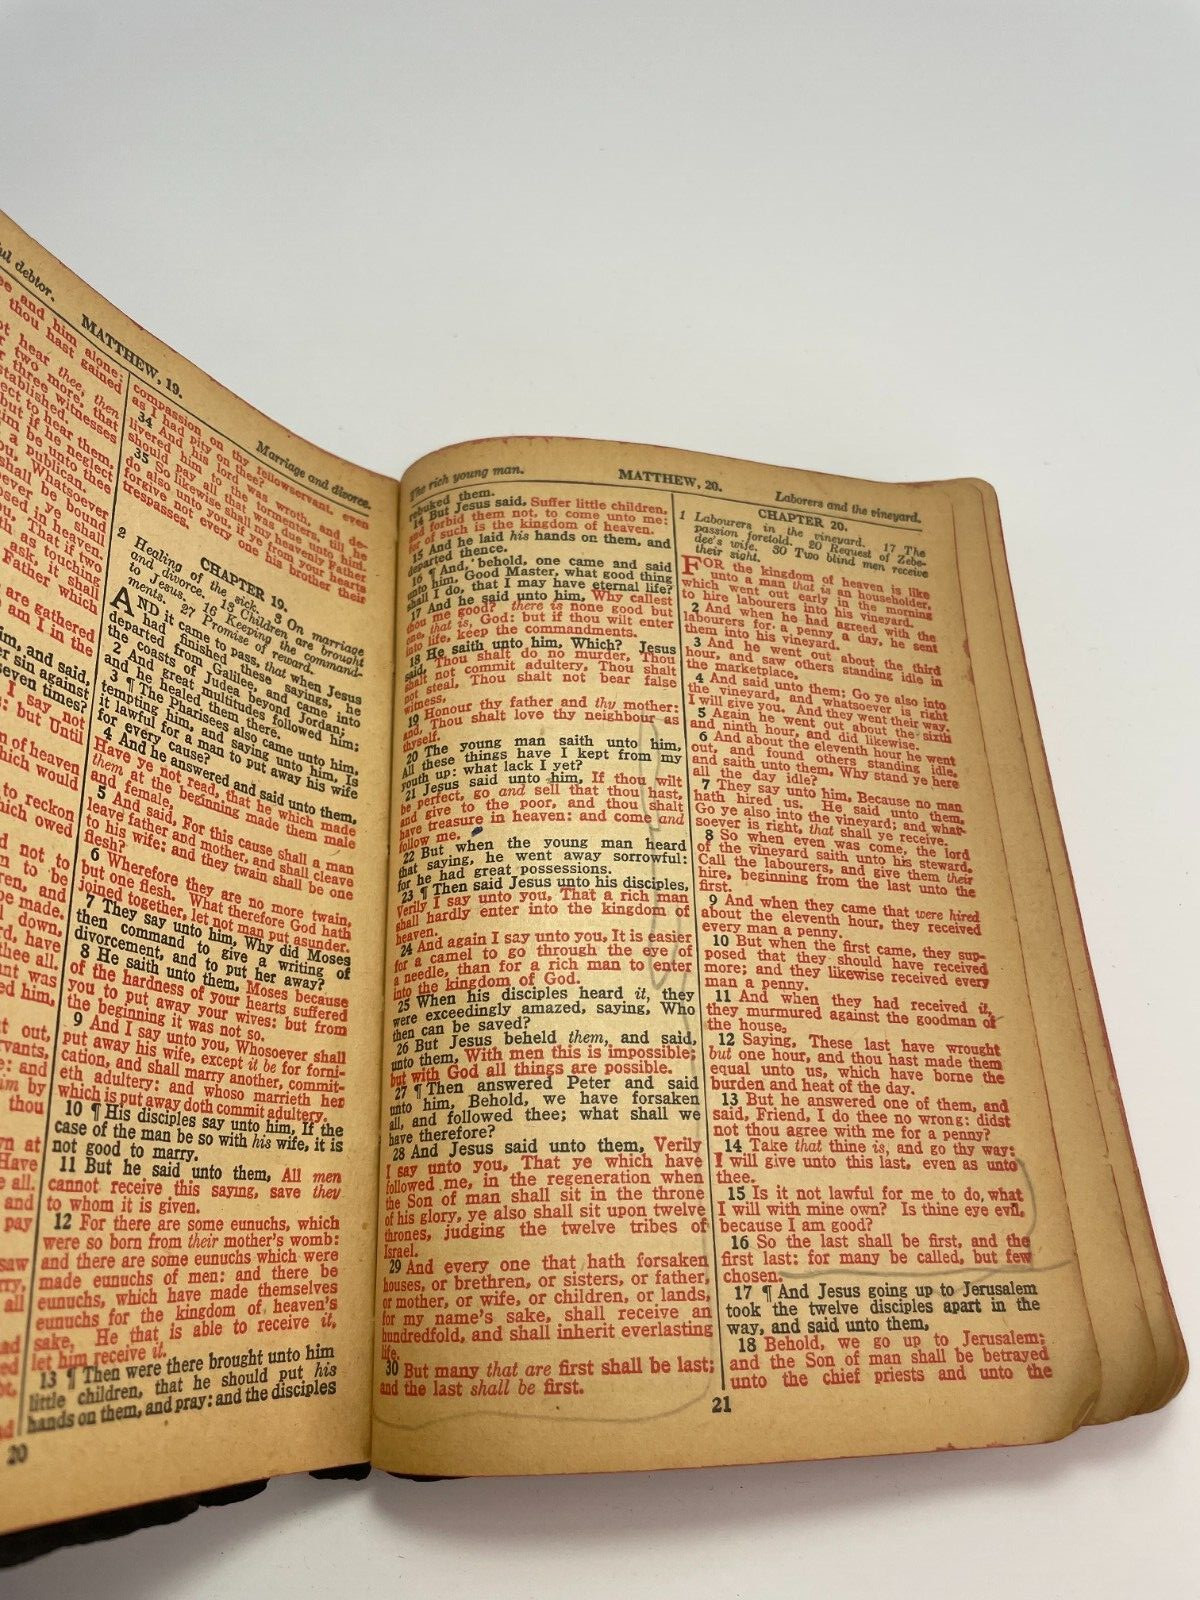 ful debtor.
MATTHEW, 19.
Marriage and divorce.
and him alone:
thou hast gained
hear thee, then
two more, that
three witnesses
established.
to hear them,
but if he neglect
him be unto thee
a publican.
Whatsoever
shall be bound
loosed in heaven.
That if two
as touching
ask, it shall
Father which
are gathered
am I in the
him, and said,
sin against
seven times?
I say not
but Until
of heaven
which would
to reckon
which owed
not to
to be
and
be made.
down,
have
thee all.
was
him,
out,
and
him by
thou
at
Have
all.
and
pay
saw
all
20
compassion on thy fellowservant, even
as I had pity on thee?
34 And his lord was wroth, and de-
livered him to the tormentors, till he
should pay all that was due unto him.
35 So likewise shall my heavenly Father
do also unto you, if ye from your hearts
forgive not every one his brother their
trespasses.
CHAPTER 19.
2 Healing of the sick. 3 On marriage
and divorce. 13 Children are brought
to Jesus. 16 Keeping the command-
ments. 27 Promise of reward.
AND it came to pass, that when Jesus
had finished these sayings, he
departed from Galilee, and came into
the coasts of Judea beyond Jordan;
2 And great multitudes followed him;
and he healed them there.
3 ¶ The Pharisees also came unto him,
tempting him, and saying unto him, Is
it lawful for a man to put away his wife
for every cause?
4 And he answered and said unto them,
Have ye not read, that he which made
them at the beginning made them male
and female,
5 And said, For this cause shall a man
leave father and mother, and shall cleave
to his wife: and they twain shall be one
flesh?
6 Wherefore they are no more twain,
but one flesh. What therefore God hath
joined together, let not man put asunder.
7 They say unto him, Why did Moses
then command to give a writing of
divorcement, and to put her away?
8 He saith unto them, Moses because
of the hardness of your hearts suffered
you to put away your wives: but from
the beginning it was not so.
9 And I say unto you, Whosoever shall
put away his wife, except it be for forni-
cation, and shall marry another, commit-
eth adultery: and whoso marrieth her
which is put away doth commit adultery.
10 ¶ His disciples say unto him, If the
case of the man be so with his wife, it is
not good to marry.
11 But he said unto them, All men
cannot receive this saying, save they
to whom it is given.
12 For there are some eunuchs, which
were so born from their mother's womb:
and there are some eunuchs which were
made eunuchs of men: and there be
eunuchs, which have made themselves
eunuchs for the kingdom of heaven's
sake. He that is able to receive it,
let him receive it.
13 ¶ Then were there brought unto him
little children, that he should put his
hands on them, and pray: and the disciples
The rich young man.
MATTHEW, 20.
Laborers and the vineyard.
rebuked them.
14 But Jesus said, Suffer little children,
and forbid them not, to come unto me:
for of such is the kingdom of heaven.
15 And he laid his hands on them, and
departed thence.
16 ¶ And, behold, one came and said
unto him, Good Master, what good thing
shall I do, that I may have eternal life?
17 And he said unto him, Why callest
thou me good? there is none good but
one, that is, God: but if thou wilt enter
into life, keep the commandments.
18 He saith unto him, Which? Jesus
said, Thou shalt do no murder, Thou
shalt not commit adultery, Thou shalt
not steal, Thou shalt not bear false
witness,
19 Honour thy father and thy mother:
and, Thou shalt love thy neighbour as
thyself.
20 The young man saith unto him,
All these things have I kept from my
youth up: what lack I yet?
21 Jesus said unto him, If thou wilt
be perfect, go and sell that thou hast,
and give to the poor, and thou shalt
have treasure in heaven: and come and
follow me.
22 But when the young man heard
that saying, he went away sorrowful:
for he had great possessions.
23 ¶ Then said Jesus unto his disciples,
Verily I say unto you, That a rich man
shall hardly enter into the kingdom of
heaven.
24 And again I say unto you, It is easier
for a camel to go through the eye of
a needle, than for a rich man to enter
into the kingdom of God.
25 When his disciples heard it, they
were exceedingly amazed, saying, Who
then can be saved?
26 But Jesus beheld them, and said,
unto them, With men this is impossible;
but with God all things are possible.
27 ¶ Then answered Peter and said
unto him, Behold, we have forsaken
all, and followed thee; what shall we
have therefore?
28 And Jesus said unto them, Verily
I say unto you, That ye which have
followed me, in the regeneration when
the Son of man shall sit in the throne
of his glory, ye also shall sit upon twelve
thrones, judging the twelve tribes of
Israel.
29 And every one that hath forsaken
houses, or brethren, or sisters, or father,
or mother, or wife, or children, or lands,
for my name's sake, shall receive an
hundredfold, and shall inherit everlasting
life.
30 But many that are first shall be last;
and the last shall be first.
CHAPTER 20.
1 Labourers in the vineyard. 17 The
passion foretold. 20 Request of Zebe-
dee's wife. 30 Two blind men receive
their sight.
FOR the kingdom of heaven is like
unto a man that is an householder,
which went out early in the morning
to hire labourers into his vineyard.
2 And when he had agreed with the
labourers for a penny a day, he sent
them into his vineyard.
3 And he went out about the third
hour, and saw others standing idle in
the marketplace,
4 And said unto them; Go ye also into
the vineyard, and whatsoever is right
I will give you. And they went their way.
5 Again he went out about the sixth
and ninth hour, and did likewise.
6 And about the eleventh hour he went
out, and found others standing idle,
and saith unto them, Why stand ye here
all the day idle?
7 They say unto him, Because no man
hath hired us. He said unto them,
Go ye also into the vineyard; and what-
soever is right, that shall ye receive.
8 So when even was come, the lord
of the vineyard saith unto his steward,
Call the labourers, and give them their
hire, beginning from the last unto the
first.
9 And when they came that were hired
about the eleventh hour, they received
every man a penny.
10 But when the first came, they sup-
posed that they should have received
more; and they likewise received every
man a penny.
11 And when they had received it,
they murmured against the goodman of
the house,
12 Saying, These last have wrought
but one hour, and thou hast made them
equal unto us, which have borne the
burden and heat of the day.
13 But he answered one of them, and
said, Friend, I do thee no wrong: didst
not thou agree with me for a penny?
14 Take that thine is, and go thy way:
I will give unto this last, even as unto
thee.
15 Is it not lawful for me to do, what
I will with mine own? Is thine eye evil,
because I am good?
16 So the last shall be first, and the
first last: for many be called, but few
chosen.
17 ¶ And Jesus going up to Jerusalem
took the twelve disciples apart in the
way, and said unto them,
18 Behold, we go up to Jerusalem;
and the Son of man shall be betrayed
unto the chief priests and unto the
21